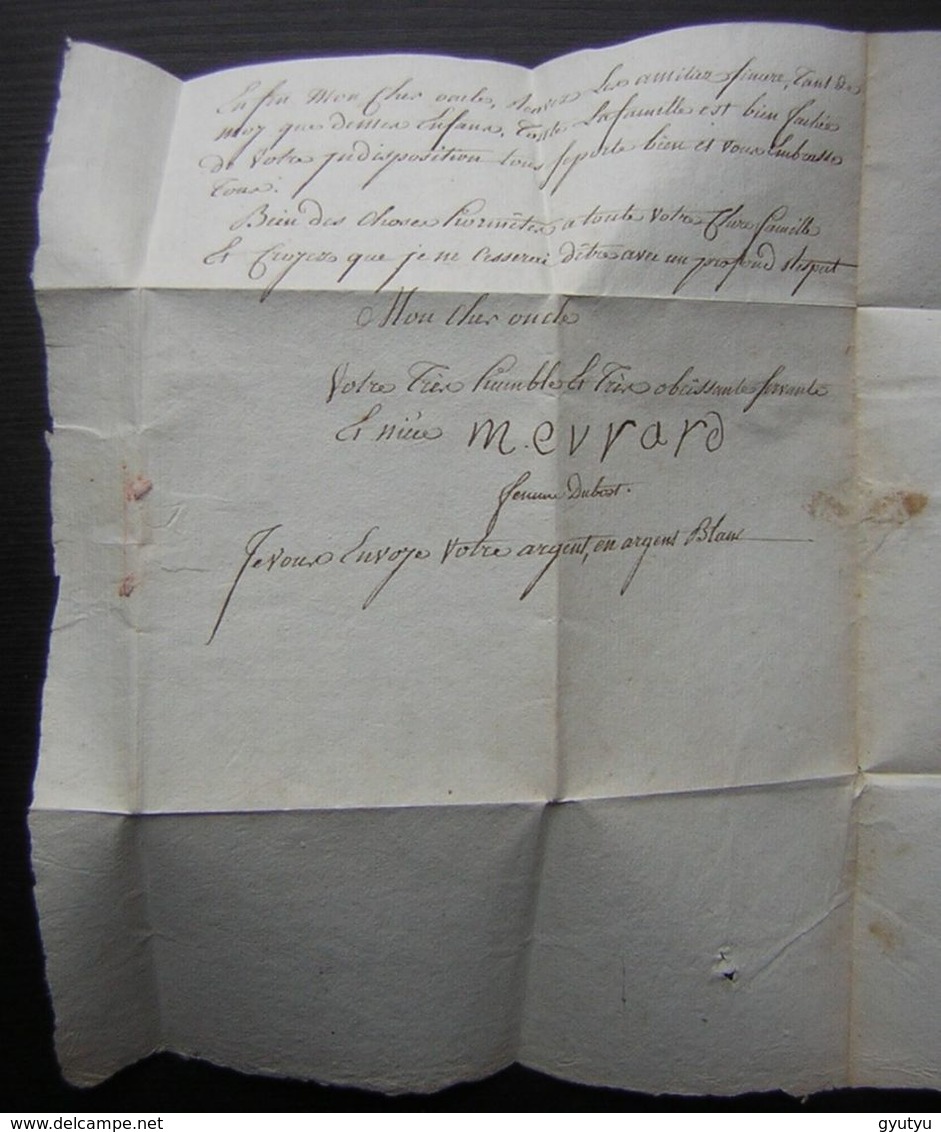 Enfin Mon Cher oncle, recevez Les amitiez sincere, tant de
moy que de mes Enfans, toute La famille est bien fachée
de votre jndisposition tous se porte bien et vous Embrasse
tous.
Bien des choses honnêtes a toute votre Chere famille
Et Croyez que je ne cesserai d'être avec un profond respect
Mon Cher oncle
Votre Très humble Et Très obeissante servante
Et niéce M. evrard
femme Dubost.
Je vous Envoye Votre argent, en argens Blanc
gyutyu